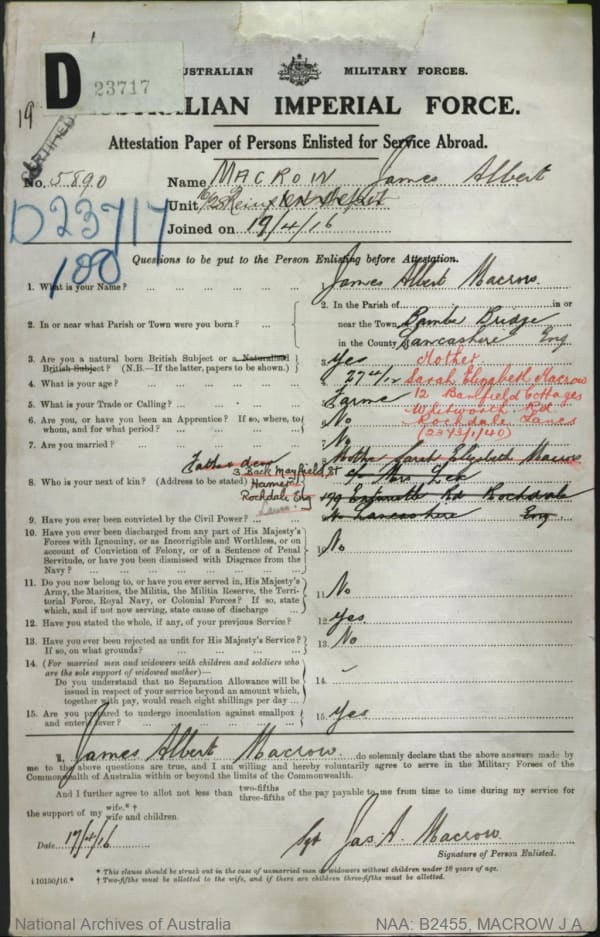 D 23717
AUSTRALIAN MILITARY FORCES.
AUSTRALIAN IMPERIAL FORCE.
Attestation Paper of Persons Enlisted for Service Abroad.
CERTIFIED
No. 5890 Name MACROW James Albert
Unit
D23717 Joined on 17/4/16
100
Questions to be put to the Person Enlisting before Attestation.
1. What is your Name? ... James Albert Macrow
2. In or near what Parish or Town were you born? ... 2. In the Parish of in or
near the Town Bamber Bridge
in the County Lancashire Eng
3. Are you a natural born British Subject or a Naturalised 3. Yes Mother
British Subject? (N.B.—If the latter, papers to be shown.)
4. What is your age? ... 4. 27 4/12 Sarah Elizabeth Macrow
5. What is your Trade or Calling? ... 12 Cottages
6. Are you, or have you been an Apprentice? If so, where, to 6. No Whitworth Rd
whom, and for what period? ... Rochdale Lancs
7. Are you married? ... 7. No (2373/1/40)
Father dead 8. Mother Sarah Elizabeth Macrow
3 Back Mayfield St
8. Who is your next of kin? (Address to be stated) Hamer
Rochdale Eng Rd Rochdale
9. Have you ever been convicted by the Civil Power? ... Lancashire Eng
10. Have you ever been discharged from any part of His Majesty's
Forces with Ignominy, or as Incorrigible and Worthless, or on
account of Conviction of Felony, or of a Sentence of Penal 10. No
Servitude, or have you been dismissed with Disgrace from the
Navy? ...
11. Do you now belong to, or have you ever served in, His Majesty's
Army, the Marines, the Militia, the Militia Reserve, the Terri-
torial Force, Royal Navy, or Colonial Forces? If so, state 11. No
which, and if not now serving, state cause of discharge ...
12. Have you stated the whole, if any, of your previous Service? 12. Yes
13. Have you ever been rejected as unfit for His Majesty's Service? 13. No
If so, on what grounds? ...
14. (For married men and widowers with children and soldiers who
are the sole support of widowed mother)—
Do you understand that no Separation Allowance will be 14.
issued in respect of your service beyond an amount which,
together with pay, would reach eight shillings per day ...
15. Are you prepared to undergo inoculation against smallpox 15. Yes
and enteric fever? ...
I, James Albert Macrow do solemnly declare that the above answers made by
me to the above questions are true, and I am willing and hereby voluntarily agree to serve in the Military Forces of the
Commonwealth of Australia within or beyond the limits of the Commonwealth.
And I further agree to allot not less than two-fifths three-fifths of the pay payable to me from time to time during my service for
the support of my wife.*† wife and children.
Date 17/4/16 Sgt Jas. A. Macrow
Signature of Person Enlisted.
* This clause should be struck out in the case of unmarried men or widowers without children under 18 years of age.
† Two-fifths must be allotted to the wife, and if there are children three-fifths must be allotted.
National Archives of Australia NAA: B2455, MACROW J A